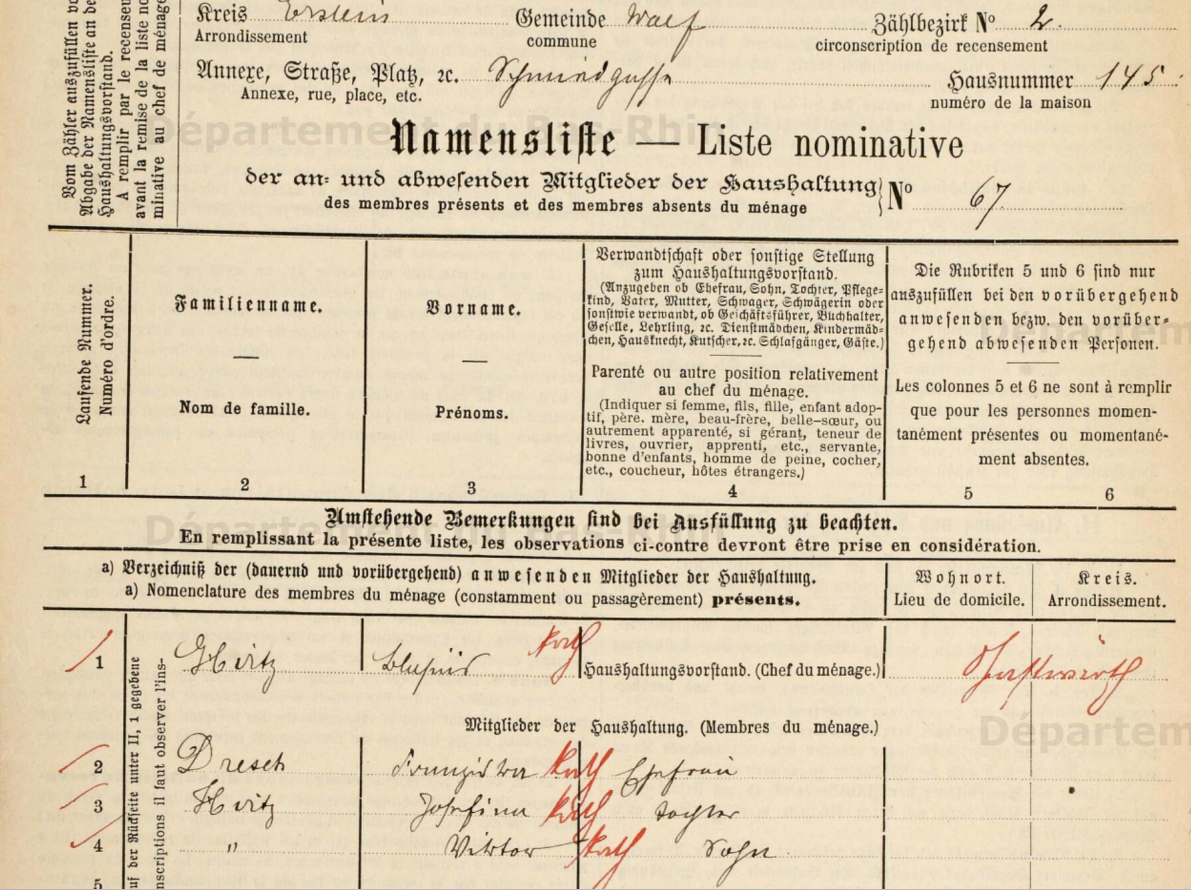 Kreis Erstein Gemeinde Walf Zählbezirk Nº 2.
Arrondissement commune circonscription de recensement
Annexe, Straße, Platz, ꝛc. Schmiedgasse Hausnummer 145
Annexe, rue, place, etc. numéro de la maison
Namensliste — Liste nominative
der an- und abwesenden Mitglieder der Haushaltung
des membres présents et des membres absents du ménage
Nº 67
Vom Zähler auszufüllen
Abgabe der Namensliste an de
Haushaltungsvorstand.
A remplir par le recenseu
avant la remise de la liste no
minative au chef de ménage
Laufende Nummer.
Numéro d'ordre.
1
Familienname.
—
Nom de famille.
2
Vorname.
—
Prénoms.
3
Verwandtschaft oder sonstige Stellung
zum Haushaltungsvorstand.
(Anzugeben ob Ehefrau, Sohn, Tochter, Pflege-
kind, Vater, Mutter, Schwager, Schwägerin oder
sonstwie verwandt, ob Geschäftsführer, Buchhalter,
Geselle, Lehrling, ꝛc. Dienstmädchen, Kindermäd-
chen, Hausknecht, Kutscher, ꝛc. Schlafgänger, Gäste.)
Parenté ou autre position relativement
au chef du ménage.
(Indiquer si femme, fils, fille, enfant adop-
tif, père. mère, beau-frère, belle-sœur, ou
autrement apparenté, si gérant, teneur de
livres, ouvrier, apprenti, etc., servante,
bonne d'enfants, homme de peine, cocher,
etc., coucheur, hôtes étrangers.)
4
Die Rubriken 5 und 6 sind nur
auszufüllen bei den vorübergehend
anwesenden bezw. den vorüber-
gehend abwesenden Personen.
Les colonnes 5 et 6 ne sont à remplir
que pour les personnes momen-
tanément présentes ou momentané-
ment absentes.
5 6
Umstehende Bemerkungen sind bei Ausfüllung zu beachten.
En remplissant la présente liste, les observations ci-contre devront être prise en considération.
a) Verzeichniß der (dauernd und vorübergehend) anwesenden Mitglieder der Haushaltung.
a) Nomenclature des membres du ménage (constamment ou passagèrement) présents.
Wohnort.
Lieu de domicile.
Kreis.
Arrondissement.
uf der Rückseite unter II, 1 gegebene
nscriptions il faut observer l'ins-
1 Hirtz Blasius kath Haushaltungsvorstand. (Chef du ménage.) Gastwirth
Mitglieder der Haushaltung. (Membres du ménage.)
2 Dresch Franziska kath Ehefrau
3 Hirtz Josefina kath Tochter
4 " Viktor kath Sohn
5
Département du Bas-Rhin